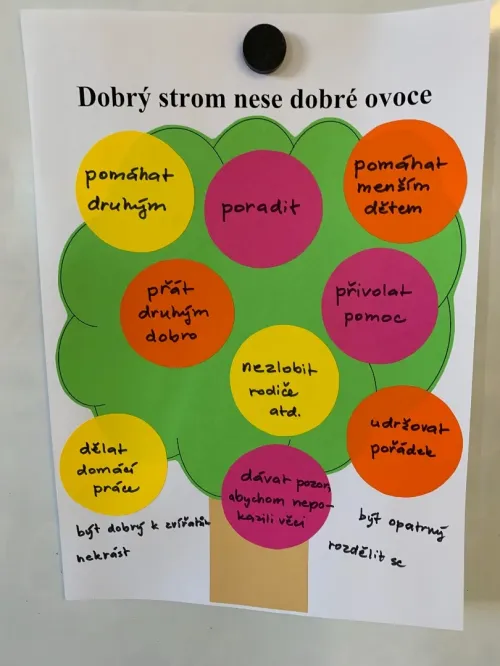 Dobrý strom nese dobré ovoce
pomáhat
druhým
poradit
pomáhat
menším
dětem
přát
druhým
dobro
přivolat
pomoc
nezlobit
rodiče
atd.
udržovat
pořádek
dělat
domácí
práce
dávat pozor,
abychom nepo-
kazili věci
být dobrý k zvířatům
nekrást
být opatrný
rozdělit se